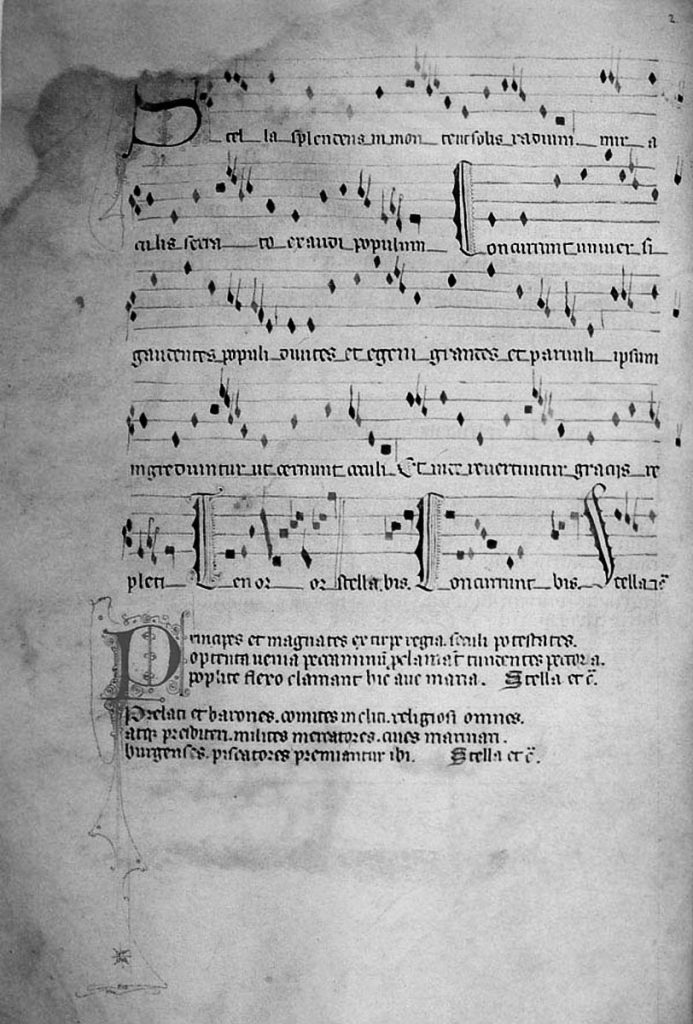 2
Stel la splendens in mon te ut solis radium mir a
culis serra to exaudi populum Concurrunt univer si
gaudentes populi divites et egeni grandes et parvuli ipsum
ingrediuntur ut cernunt oculi Et inde revertuntur graciis re
pleti Tenor or stella. bis. Concurrunt bis Stella
Principes et magnates ex tirpe regia. seculi potestates.
optenta venia peccaminum pclamant tundentes pectora.
poplite flexo clamant hic ave maria. Stella et c̄.
Prelati et barones. comites incliti. religiosi omnes.
atque presbiteri. milites mercatores. cives marinari.
burgenses. piscatores premiantur ibi. Stella et c̄.